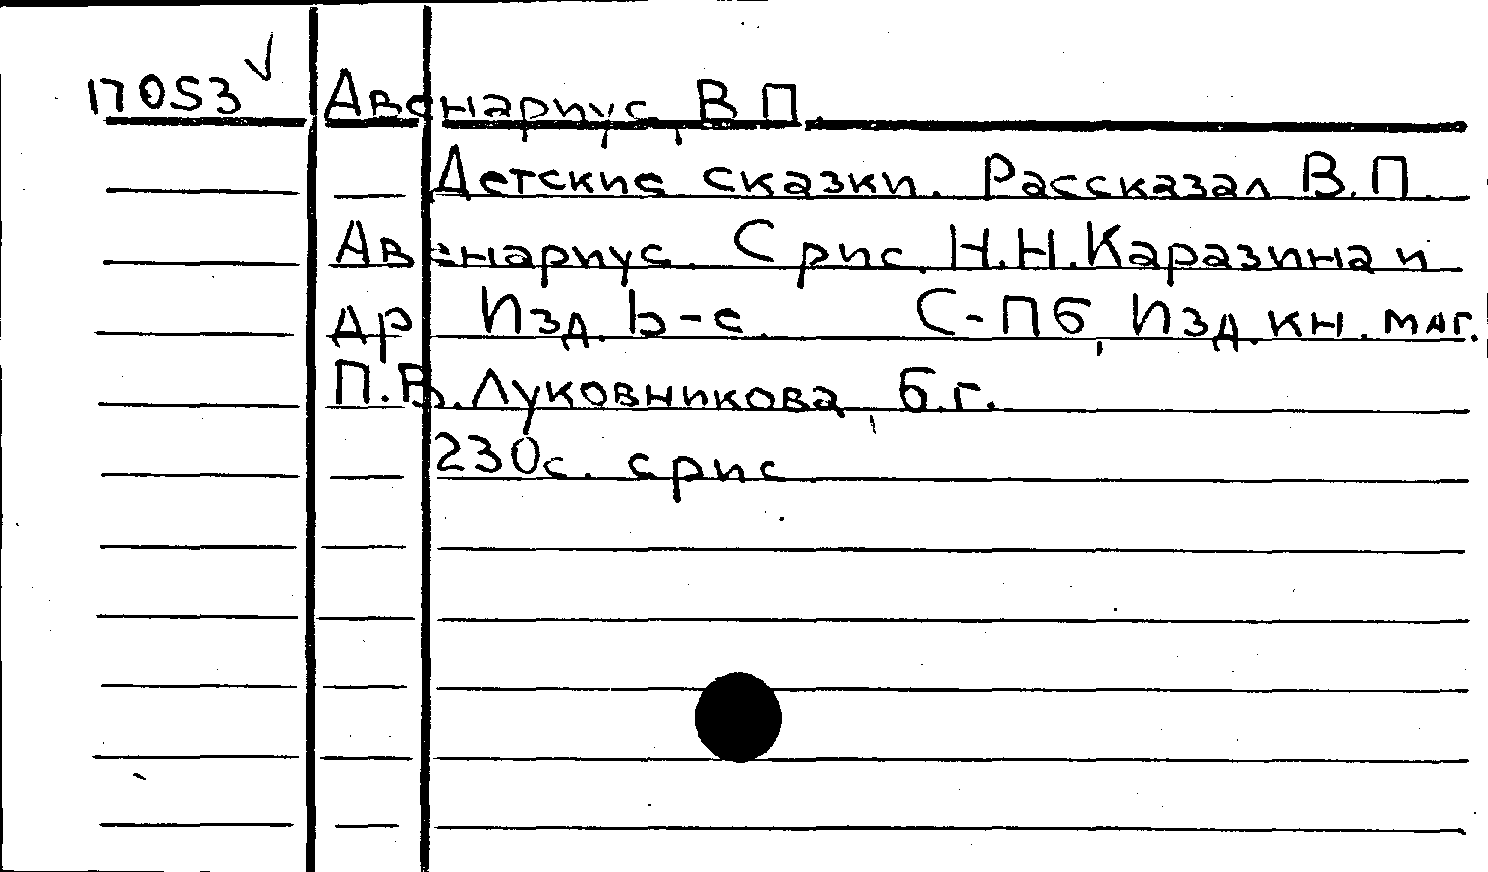 17053 Авенариус, В.П.
Детские сказки. Рассказал В.П.
Авенариус. С рис. Н.Н.Каразина и
др. Изд. 6-е. С-Пб, Изд. кн. маг.
П.В. Луковникова, б.г.
230с. с рис